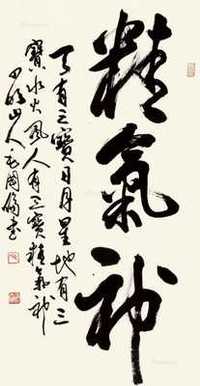 精氣神
天有三寶日月星地有三
寶水火風人有三寶精氣神
山人毛國倫書